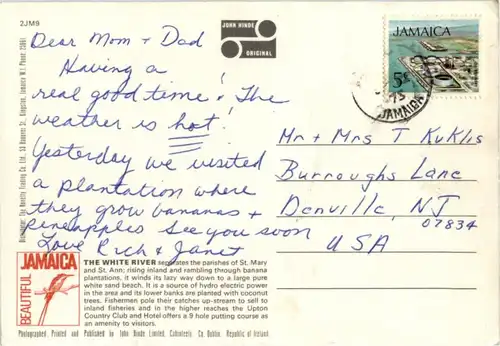 2JM9
JOHN HINDE
ORIGINAL
JAMAICA
5¢
JAMAICA
Dear Mom + Dad
Having a
real good time! The
weather is hot!
Yesterday we visited
a plantation where
they grow bananas +
pineapples See you soon
Love Rich & Janet
Mr + Mrs T Kuklis
Burroughs Lane
Denville, NJ
07834
USA
Distributor: The Novelty Trading Co. Ltd., 53 Hanover St., Kingston, Jamaica W.I. Phone: 23661
BEAUTIFUL
JAMAICA
THE WHITE RIVER seperates the parishes of St. Mary
and St. Ann; rising inland and rambling through banana
plantations, it winds its lazy way down to a large pure
white sand beach. It is a source of hydro electric power
in the area and its lower banks are planted with coconut
trees. Fishermen pole their catches up-stream to sell to
inland fisheries and in the higher reaches the Upton
Country Club and Hotel offers a 9 hole putting course as
an amenity to visitors.
Photographed, Printed and Published by John Hinde Limited, Cabinteely, Co. Dublin, Republic of Ireland.